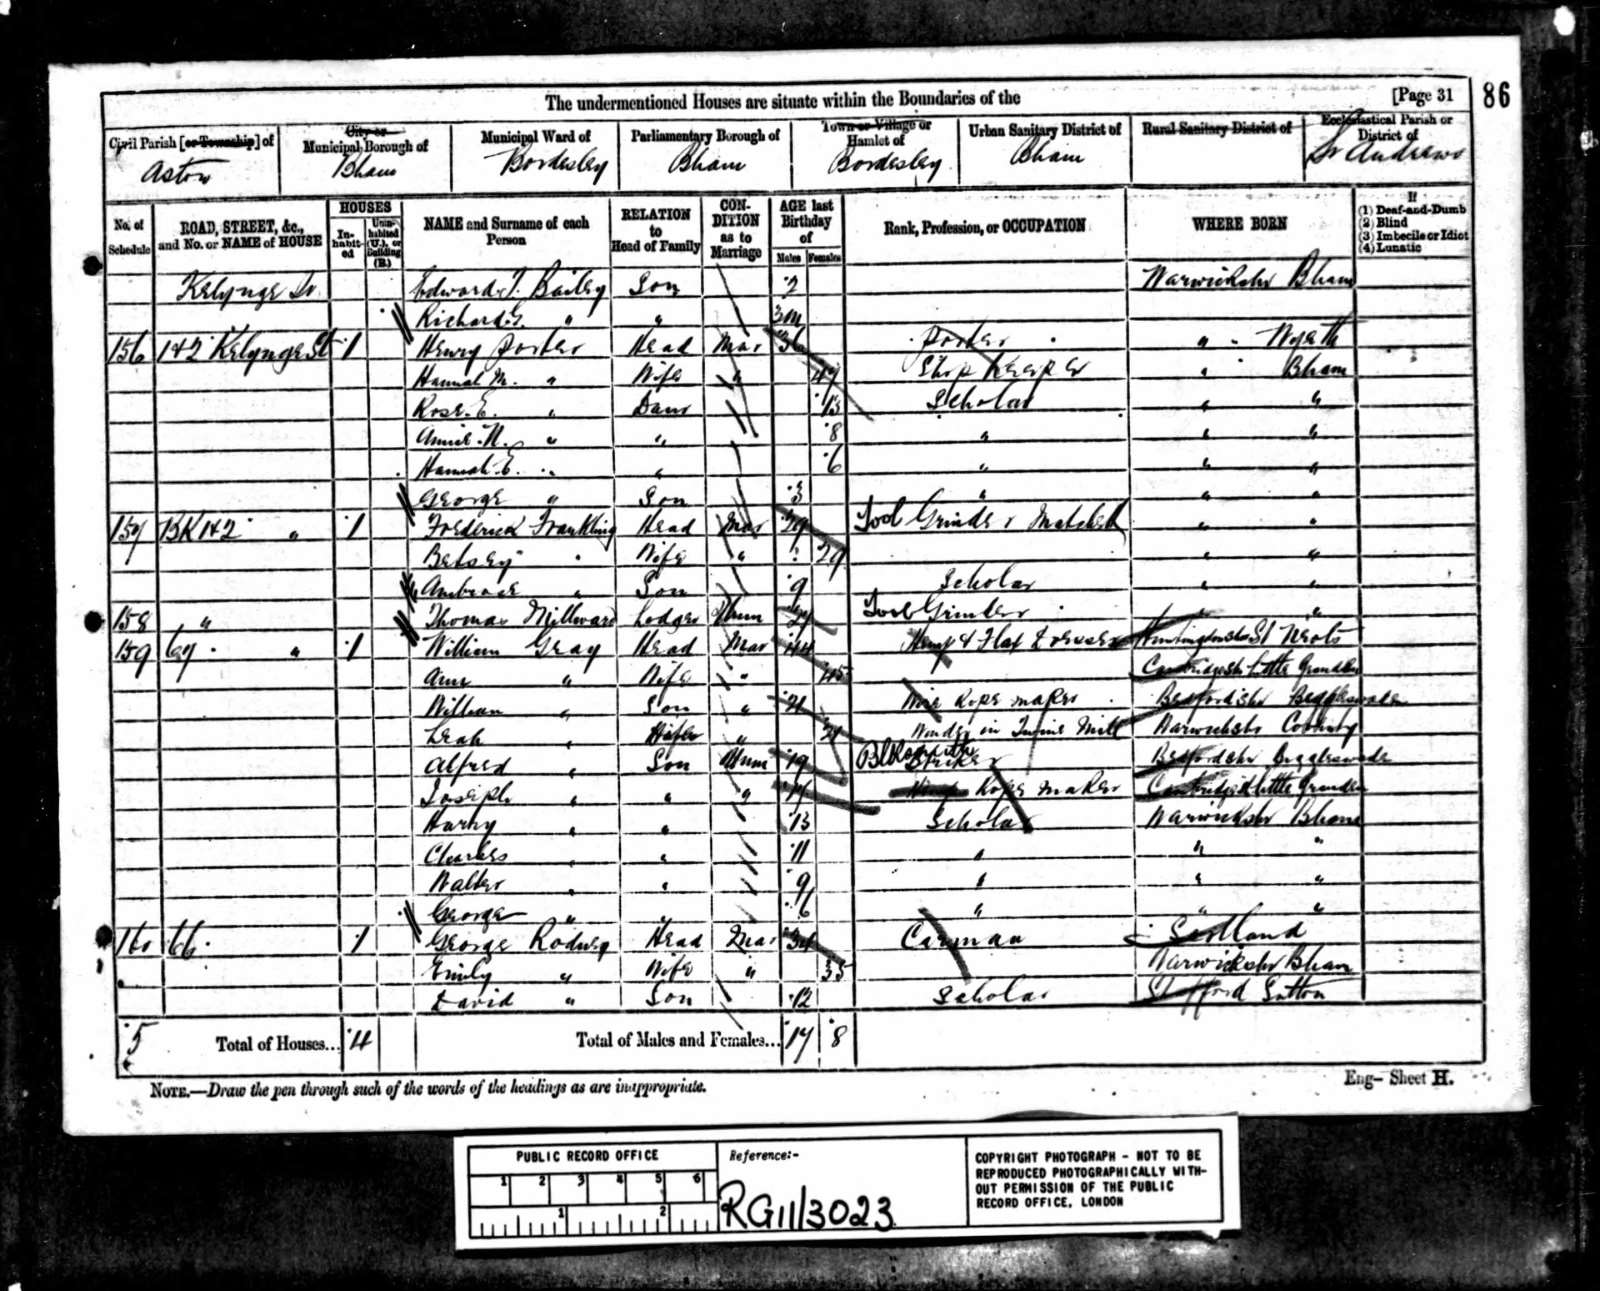 The undermentioned Houses are situate within the Boundaries of the [Page 31 86
Civil Parish [or Township] of Aston
City or Municipal Borough of Bham
Municipal Ward of Bordesley
Parliamentary Borough of Bham
Town or Village or Hamlet of Bordesley
Urban Sanitary District of Bham
Rural Sanitary District of
Ecclesiastical Parish or District of St Andrews
No. of Schedule
ROAD, STREET, &c., and No. or NAME of HOUSE
HOUSES
Inhabited
Uninhabited (U.), or Building (B.)
NAME and Surname of each Person
RELATION to Head of Family
CONDITION as to Marriage
AGE last Birthday of
Males Females
Rank, Profession, or OCCUPATION
WHERE BORN
If
(1) Deaf-and-Dumb
(2) Blind
(3) Imbecile or Idiot
(4) Lunatic
Kelynge St Edward T. Bailey Son 2 Warwicksh Bham
Richard G. " " 3m
156 142 Kelynge St 1 Henry Porter Head Mar 36 Porter " "
Hannah M. " Wife " 47 Shop Keeper " Bham
Rose E. " Daur 13 Scholar " "
Annie N. " " 8 " " "
Hannah E. " " 6 " " "
George " Son 3 " " "
157 BK 142 " 1 Frederick Frankling Head Mar 29 Tool Grinder " "
Betsey " Wife " 29 " "
Ambrose " Son 9 Scholar " "
158 " Thomas Millward Lodger Unm Tool Grinder " "
159 67 " 1 William Gray Head Mar 44 Hemp & Flax Dresser Huntingdonsh St Neots
Ann " Wife " 45 Cambridgesh Little Gransden
William " Son " 21 Wire Rope maker Bedfordshr Biggleswade
Leah " Wife " 21 Winder in Twine Mill Warwicksh Coventry
Alfred " Son Unm 19 Blksmith Striker Bedfordshr Biggleswade
Joseph " " " 17 Rope maker Cambridgesh Little Gransden
Harry " " 13 Scholar Warwicksh Bham
Charles " " 11 " " "
Walter " " 9 " " "
George " " 6 " " "
160 66 1 George Rodway Head Mar 34 Carman Scotland
Emily " Wife " 35 Warwickshr Bham
David " Son 12 Scholar Stafford Sutton
5 Total of Houses... 4 Total of Males and Females... 17 8
NOTE.—Draw the pen through such of the words of the headings as are inappropriate.
Eng— Sheet H.
PUBLIC RECORD OFFICE
1 2 3 4 5 6
1 2
Reference:-
RG11/3023
COPYRIGHT PHOTOGRAPH - NOT TO BE
REPRODUCED PHOTOGRAPHICALLY WITH-
OUT PERMISSION OF THE PUBLIC
RECORD OFFICE, LONDON